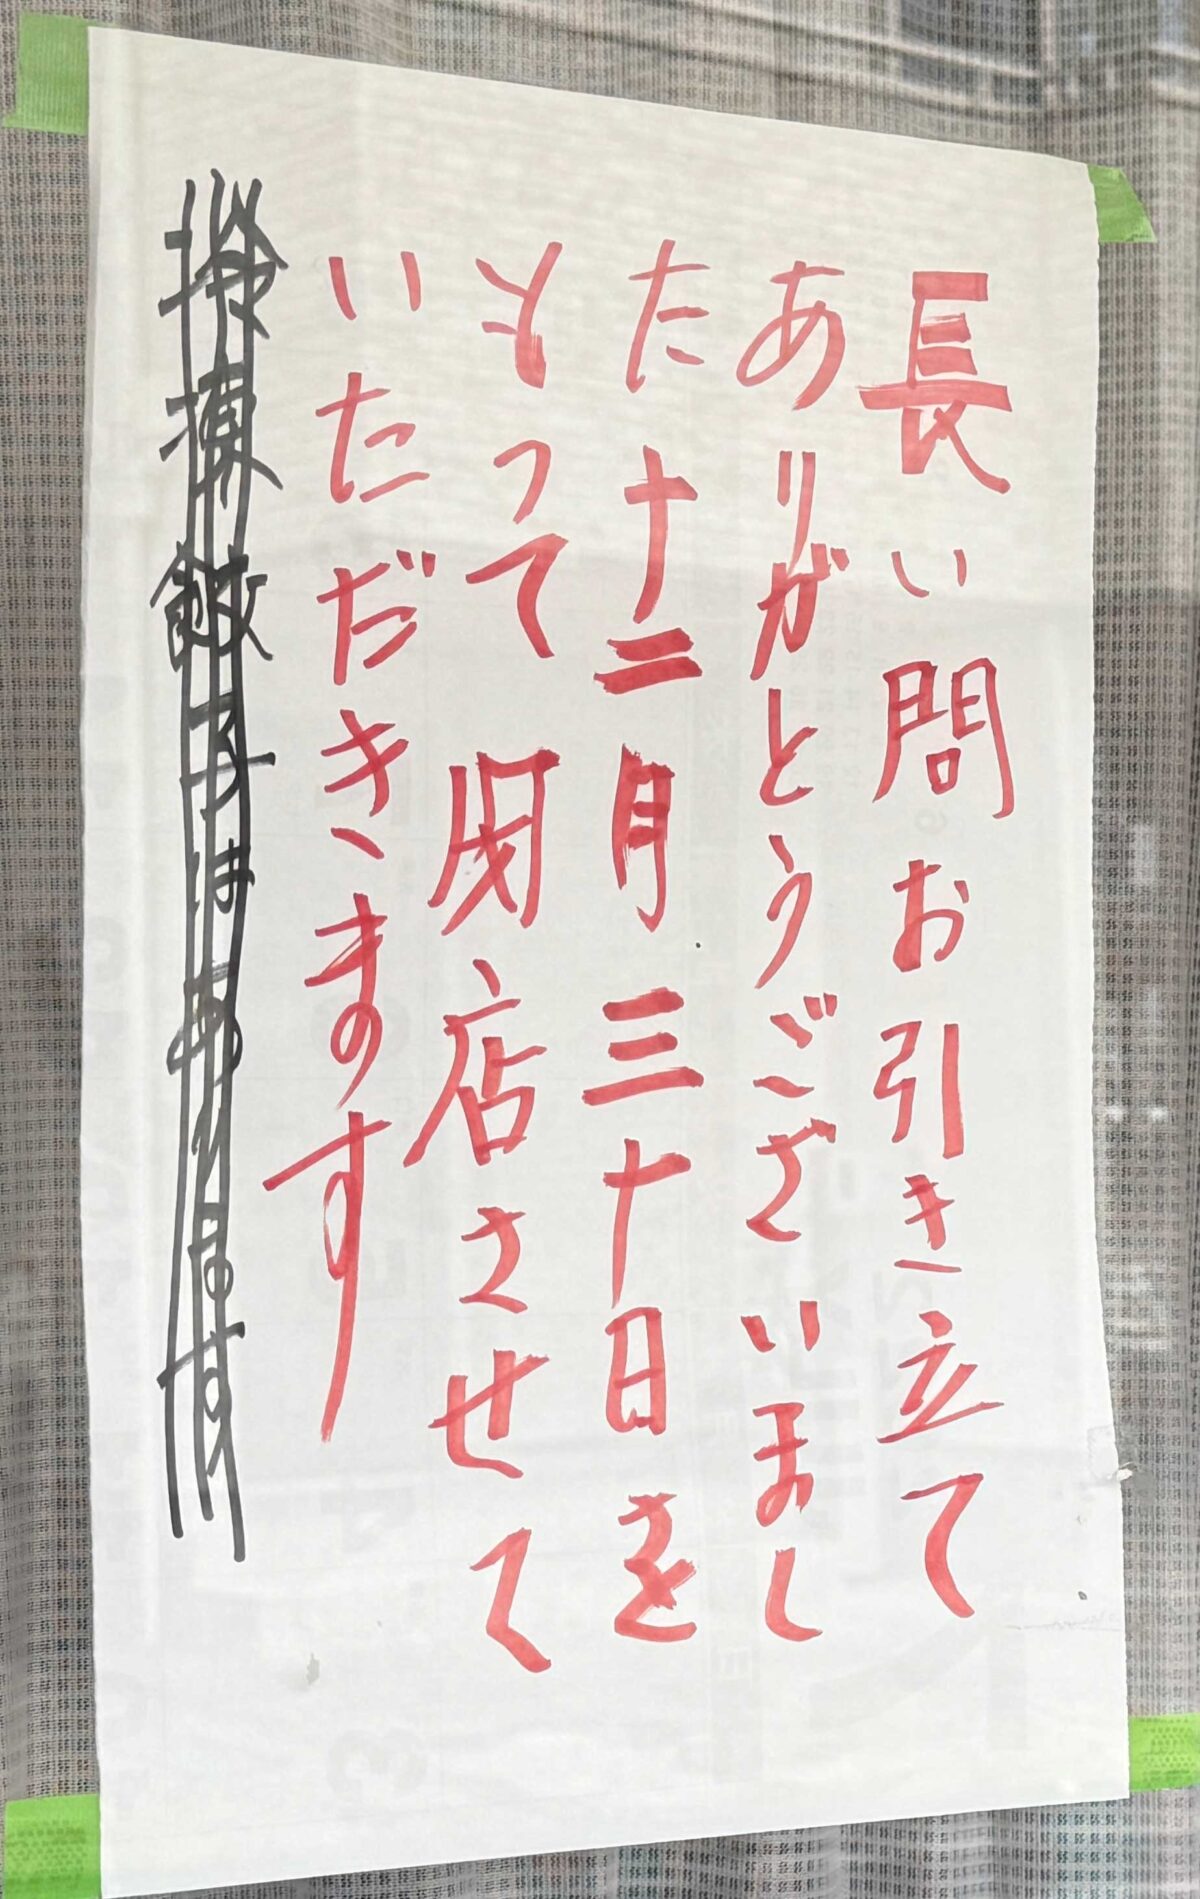 長い問お引き立て
ありがとうございまし
た十二月三十日を
もって閉店させて
いただきます
餃子は